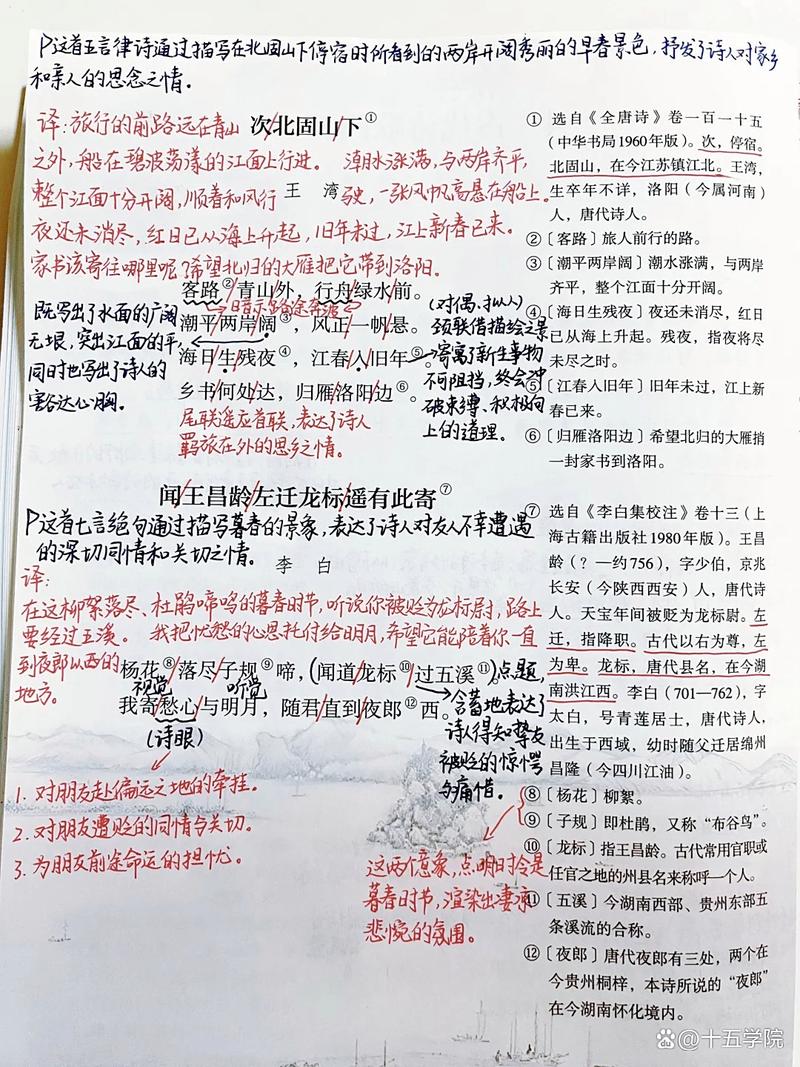 P这首五言律诗通过描写在北固山下停宿时所看到的两岸开阔秀丽的早春景色，抒发了诗人对家乡
和亲人的思念之情。
译：旅行的前路远在青山
次北固山下①
之外，船在碧波荡漾的江面上行进。 潮水涨满，与两岸齐平，
整个江面十分开阔，顺着和风行
王 湾
驶，一张风帆高悬在船上。
夜还未消尽，红日已从海上升起，旧年未过，江上新春已来。
家书该寄往哪里呢？希望北归的大雁把它带到洛阳。
客路②/青山/外，行舟/绿水/前。
暗示路途奔波
潮平/两岸/阔③，风正/一帆/悬。
海日/生/残夜④，江春/入/旧年⑤。
乡书/何处/达，归雁/洛阳/边⑥。
既写出了水面的广阔
无垠，突出江面的平，
同时也写出了诗人的
豁达心胸。
(对偶、拟人)
颈联借描绘之景
寄寓了新生事物
不可阻挡，终会冲
破束缚、积极向
上的道理。
尾联遥应首联，表达了诗人
羁旅在外的思乡之情。
闻/王昌龄/左迁/龙标/遥有此寄⑦
P这首七言绝句通过描写暮春的景象，表达了诗人对友人不幸遭遇
的深切同情和关切之情。
李 白
译：
在这柳絮落尽、杜鹃啼鸣的暮春时节，听说你被贬为龙标尉，路上
要经过五溪。 我把忧愁的心思托付给明月，希望它能陪着你一直
到夜郎以西的
地方。
杨花⑧/落尽/子规⑨啼，(闻道/龙标⑩/过五溪⑪。)点题，
视觉 听觉
我寄/愁心/与明月，随君/直到/夜郎⑫西。
(诗眼)
含蓄地表达了
诗人得知挚友
被贬的惊愕
与痛惜。
1. 对朋友赴偏远之地的牵挂。
2. 对朋友遭贬的同情与关切。
3. 为朋友前途命运的担忧。
这两个意象，点明时令是
暮春时节，渲染出凄凉
悲惋的氛围。
① 选自《全唐诗》卷一百一十五
（中华书局1960年版）。次，停宿。
北固山，在今江苏镇江北。王湾，
生卒年不详，洛阳（今属河南）
人，唐代诗人。
②〔客路〕旅人前行的路。
③〔潮平两岸阔〕潮水涨满，与两岸
齐平，整个江面十分开阔。
④〔海日生残夜〕夜还未消尽，红日
已从海上升起。残夜，指夜将尽
未尽之时。
⑤〔江春入旧年〕旧年未过，江上新
春已来。
⑥〔归雁洛阳边〕希望北归的大雁捎
一封家书到洛阳。
⑦ 选自《李白集校注》卷十三（上
海古籍出版社1980年版）。王昌
龄（？—约756），字少伯，京兆
长安（今陕西西安）人，唐代诗
人。天宝年间被贬为龙标尉。左
迁，指降职。古代以右为尊，左
为卑。龙标，唐代县名，在今湖
南洪江西。李白（701—762），字
太白，号青莲居士，唐代诗人，
出生于西域，幼时随父迁居绵州
昌隆（今四川江油）。
⑧〔杨花〕柳絮。
⑨〔子规〕即杜鹃，又称“布谷鸟”。
⑩〔龙标〕指王昌龄。古代常用官职或
任官之地的州县名来称呼一个人。
⑪〔五溪〕今湖南西部、贵州东部五
条溪流的合称。
⑫〔夜郎〕唐代夜郎有三处，两个在
今贵州桐梓，本诗所说的“夜郎”
在今湖南怀化境内。
@十五学院